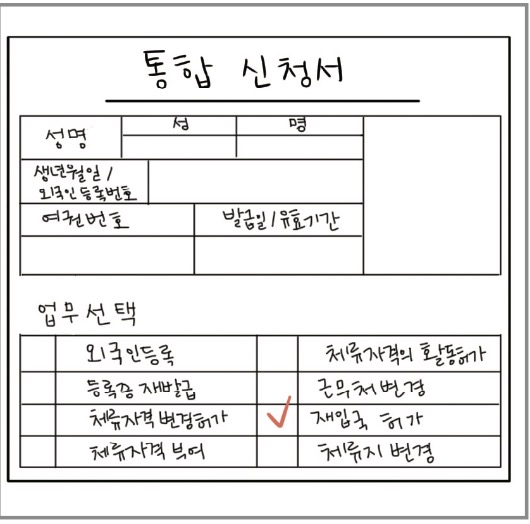 통합 신청서
성명 성 명
생년월일 /
외국인등록번호
여권번호 발급일/유효기간
업무선택
외국인등록 체류자격외 활동허가
등록증 재발급 근무처변경
체류자격 변경허가 재입국 허가
체류자격 부여 체류지 변경